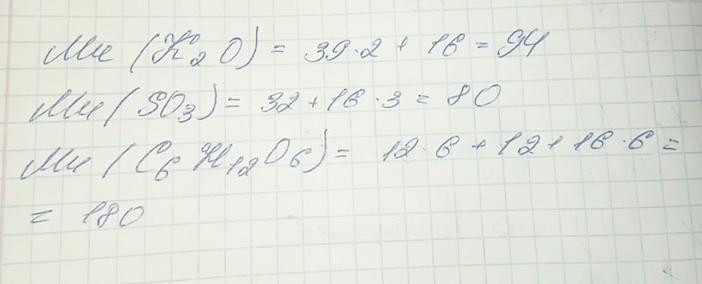 Mr (K₂O) = 39·2 + 16 = 94
Mr (SO₃) = 32 + 16·3 = 80
Mr (C₆H₁₂O₆) = 12·6 + 12 + 16·6 =
= 180